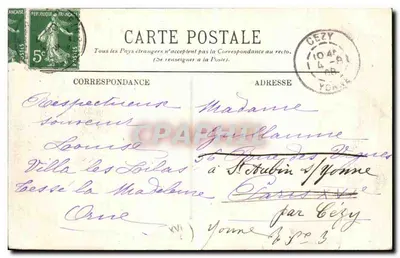 CARTE POSTALE
Tous les Pays étrangers n'acceptent pas la Correspondance au recto.
(Se renseigner à la Poste).
5c
CEZY
YONNE
CORRESPONDANCE
ADRESSE
Respectueux
souvenir
Louise
Villa les Lilas
Tessé la Madeleine
Orne
Madame
Guillaume
à St Aubin s/Yonne
Paris
par Cézy
Yonne